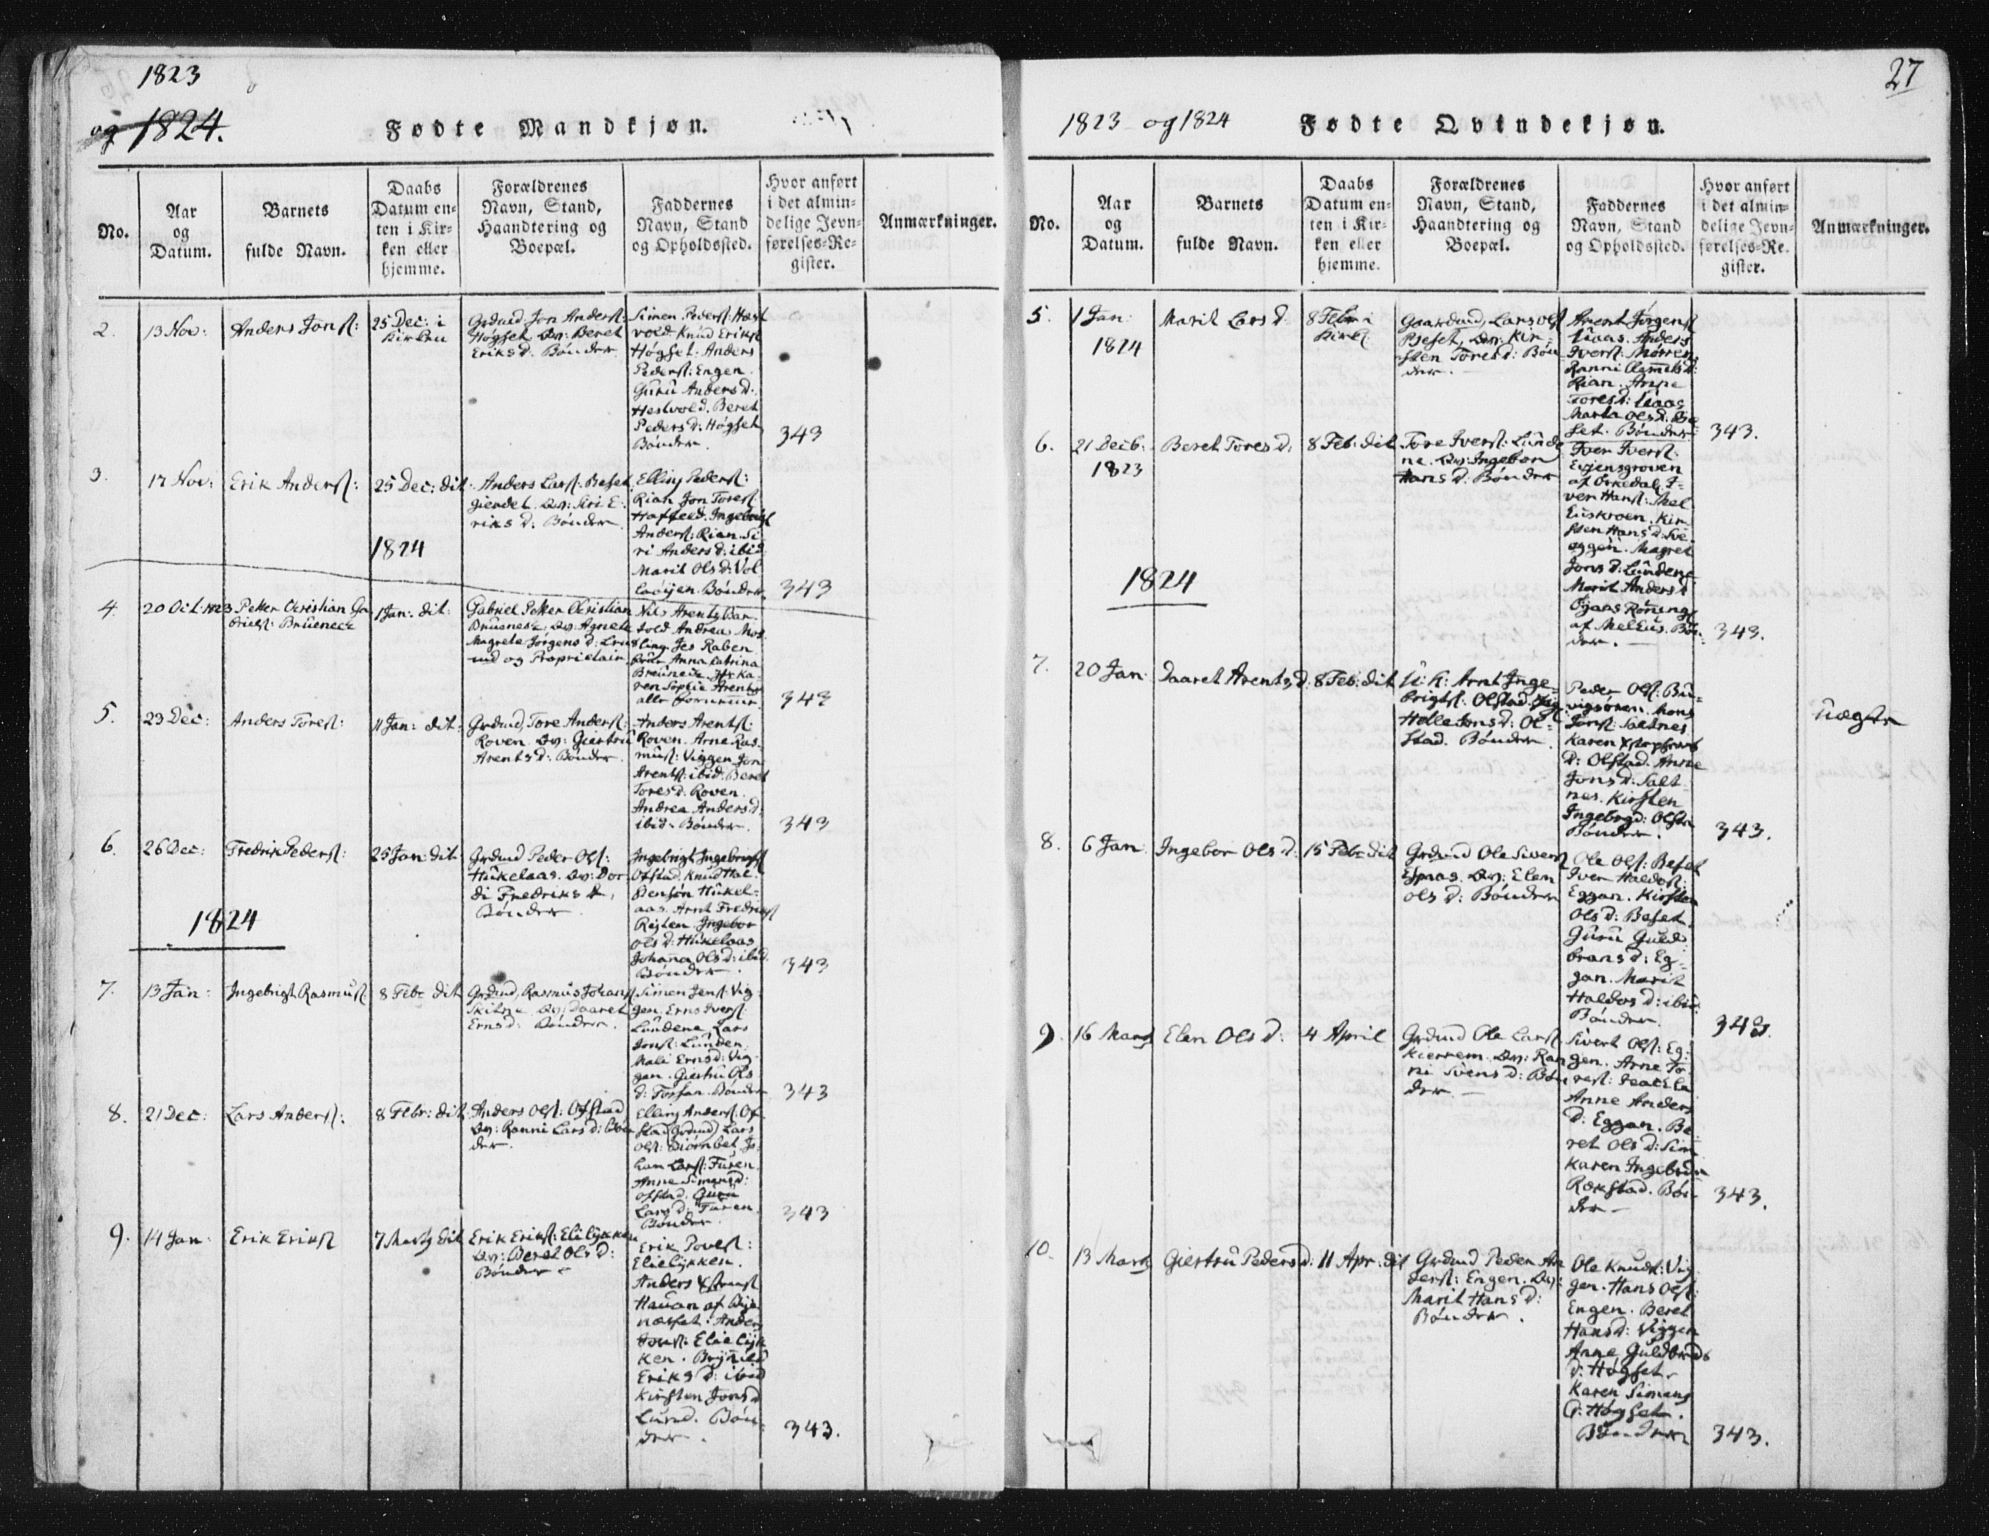 1823
og 1824.
Fødte Mandkjøn.
No.
Aar
og
Datum.
Barnets
fulde Navn.
Daabs
Datum en-
ten i Kir-
ken eller
hjemme.
Forældrenes
Navn, Stand,
Haandtering og
Boepæl.
Faddernes
Navn, Stand
og Opholdssted.
Hvor anført
i det almin-
delige Jevn-
førelses-Re-
gister.
Anmærkninger.
2.
13 Nov:
Anders Jonsₛ:
25 Dec: i
Kirken
Grdmd Jon Anders:
Høgset Qv: Beret
Eriks d. Bønder
Simen Peders: Hest
vold Knud Eriks
Høgset. Anders
Peders: Engen.
Guru Anders d:
Hestvold. Beret
Peders d: Høgset
Bønder.
343
3.
17 Nov:
Erik Anders:
25 Dec: dit
Anders Lars: Beset
gierdet. Qv: Siri E-
riks d. Bønder
Elling Peders:
Rian Jon Tores
Ingebrigt
Anders: Rian. Si
ri Anders d: ibid
Marit Ols d:
Bønder
343
1824
4
20 Oct. 1823
Peter Christian Ga
briels: Brüenech
1 Jan: dit:
Gabriel Peter Christian
Brüenech, Qv: Agnete
Magrete Jørgens d:
og Proprietair
Nils Arentz Bar
Andrea
Jes Raben
Anna Catrina
Breünech Ka
ren Sophie Arentz
alle
343
5.
23 Dec:
Anders Tores:
11 Jan: dit:
Grdmd, Tore Anders:
Roven Qv: Giertru
Arents d: Bønder
Anders Arents:
Roven. Arne Ras
mus: Viggen Jon
Arents: ibid. Beret
Tores d: Roven.
Andrea Anders d:
ibid. Bønder.
343
6.
26 Dec:
Fredrik Peders:
25 Jan: dit
Grdmd Peder Ols:
Hükelaas. Qv: Dor
di Fredriks d,
Bønder
Ingebrigt Ingebrigts
Ofstad. Knud Hal
Hükel-
aas. Arnt Fredriks
Reiten Ingebor
Ols d: Hükelaas
Johanna Ols d: ibid.
Bønder.
343
1824
7.
13 Jan:
Ingebrigt Rasmus:
8 Febr dit
Grdmd, Rasmus Johans
Skitne Qv: Daaret
Erns d: Bønder
Simen Jens: Vig
gen. Erns Ivers:
Lundene. Lars
Jons: Lunden.
Mali Erns d: Vig
gen. Giertru Ols
d: Bønder
343
8.
21 Dec:
Lars Anders:
8 Febr: dit
Anders Ols: Ofstad
Qv: Ronni Lars d: Bøn
der.
Elling Anders: Of
stad Grdmd, Lars
Ols: Biørnbet Jo-
han Lars: Füren.
Anne Simens d:
Ofstad. Guru
Lars d: Füren.
Bønder.
343
9.
14 Jan.
Erik Eriks
7 Marts dit
Erik Eriks: Elielykken
Qv: Beret Ols d:
Bønder
Erik Povels:
Elielykken.
Anders
Hauan af Bye
næsset. Anders
Jons: Elielyk
ken. Brynild
Eriks d: ibid
Kirsten Jons d
Lund. Bøn-
der.
343.
27
1823 og 1824
Fødte Qvindekjøn.
No.
Aar
og
Datum.
Barnets
fulde Navn.
Daabs
Datum en-
ten i Kir-
ken eller
hjemme.
Forældrenes
Navn, Stand,
Haandtering og
Boepæl.
Faddernes
Navn, Stand
og Opholdssted.
Hvor anført
i det almin-
delige Jevn-
førelses-Re-
gister.
Anmærkninger.
5.
1 Jan:
1824
Marit Lars d.
8 Febr i
Kirk
Gaardmd, Lars Ols
Beset, Qv: Kir-
sten Tores d: Bøn
der.
Arent Jørgens
Uaas. Anders
Ivers:
Ranni
Rian. Anne
Tores d: Uaas
Marta Ols d: Be
set. Bønder
343.
6.
21 Decb.
1823
Beret Tores d:
8 Feb: dit
Tore Ivers: Lunde
ne. Qv: Ingebor
Hans d: Bønder
Iver Ivers:
Evjensgroven
af Orkedal. I-
ver Hans: Mel
Kir
sten Hans d:
eggen. Magret
Jons d: Lundene.
Marit Anders d
af Melhus. Bøn
der.
343.
1824
7.
20 Jan.
Daaret Arents d:
8 Feb: dit
U:K: Arnt Inge-
brigts: Olstad. Pig
Helle Jons d: Ol-
stad. Bønder.
Peder Ols: Bu-
vigsøren. Mons
Jons: Saltnes
Karen
d: Olstad. Anne
Jons d: Salt
nes. Kirsten
Ingebrgd: Olsta
Bønder.
343.
uægte
8.
6 Jan
Ingebor Ols d:
15 Febr dit
Grdmd Ole Sivers
Espaas. Qv: Elen
Ols d: Bønder
Ole Ols: Beset
Iver Haldos:
Eggan. Kirsten
Ols d: Beset
Guru Guld
brans d: Eg-
gan. Marit
Haldors d: ibid
Bønder.
343.
9.
16 Marts
Elen Ols d:
4 April
Grdmd Ole Lars
Kierrem. Qv: Ran
ni Svens d: Bøn
der
Sivert Ols: Eg-
gen. Arne To
res:
Anne Anders
d: Eggan. Be
ret Ols d:
Karen Ingebr
Rokstad. Bøn
der
343.
10.
13 Marts
Giertru Peders d:
11 Apr: dit
Grdmd Peder An
ders: Engen. Qv:
Marit Hans d:
Bønder.
Ole Knuds: Vig
gen. Hans Ols:
Engen. Beret
Hans d: Viggen
Anne Guldbrds
d: Høgset.
Karen Simens
d: Høgset.
Bønder
343.